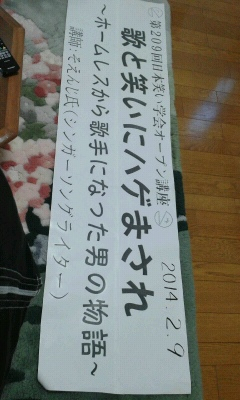 第209回日本笑い学会オープン講座
2014.2.9
歌と笑いにハゲまされ
～ホームレスから歌手になった男の物語～
講師:そえんじ氏(シンガーソングライター)